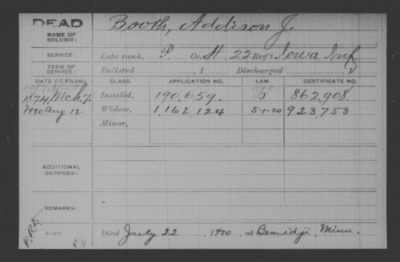 DEAD
Booth, Addison J.
NAME OF SOLDIER:
SERVICE:
Late rank, P. Co. H, 22 Reg't Iowa Inf
TERM OF SERVICE:
Enlisted , 1 Discharged
DATE OF FILING. CLASS. APPLICATION NO. LAW. CERTIFICATE NO.
1874 Mch 7 Invalid, 190,659 862,908
1920 Aug 12 Widow, 1,162,124 5-1-20 923,753
Minor,
ADDITIONAL SERVICES:
REMARKS:
Died July 22 1920, at Bemidji, Minn.